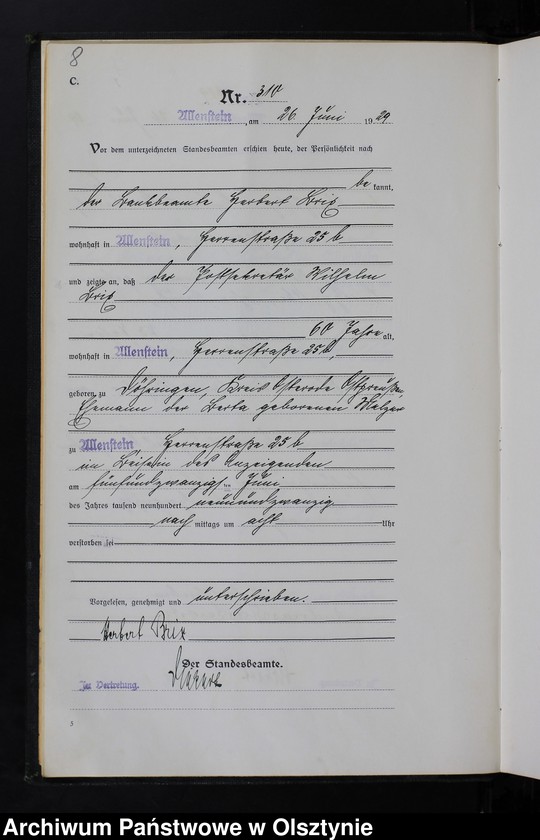 8
C.
Nr. 310
Allenstein, am 26. Juni 1929
Vor dem unterzeichneten Standesbeamten erschien heute, der Persönlichkeit nach
be kannt,
der Bankbeamte Herbert Brix
wohnhaft in Allenstein, Herrenstraße 25 b
und zeigte an, daß der Postsekretär Wilhelm
Brix
60 Jahre alt,
wohnhaft in Allenstein, Herrenstraße 25 b,
geboren zu Döhringen, Kreis Osterode Ostpreußen,
Ehemann der Berta geborenen
zu Allenstein Herrenstraße 25 b
im Beisein des Anzeigenden
am fünfundzwanzigsten Juni
des Jahres tausend neunhundert neunundzwanzig
nach mittags um acht Uhr
verstorben sei
Vorgelesen, genehmigt und unterschrieben.
Herbert Brix
Der Standesbeamte.
In Vertretung.
5
Archiwum Państwowe w Olsztynie